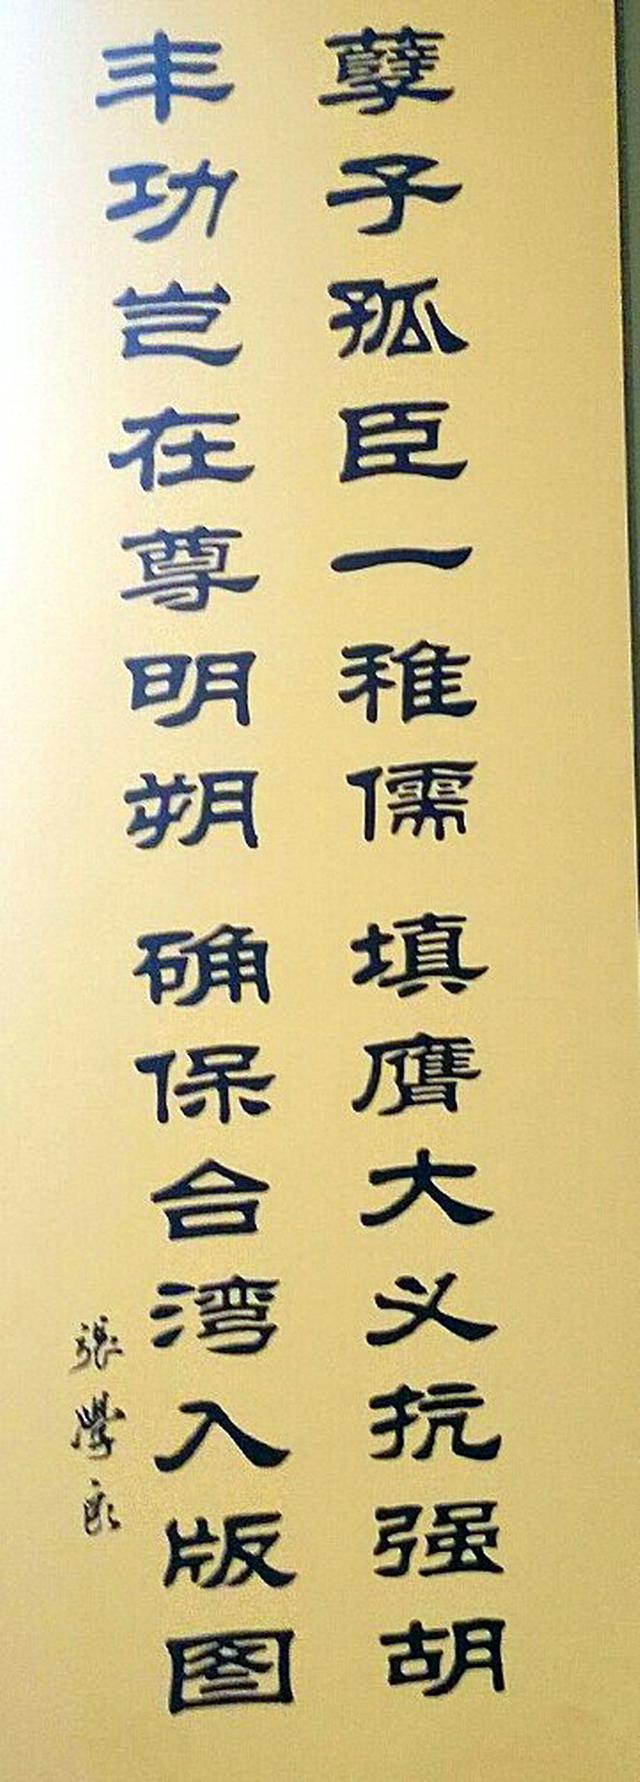 孽子孤臣一稚儒 填膺大义抗强胡
丰功岂在尊明朔 确保台湾入版图
張學良